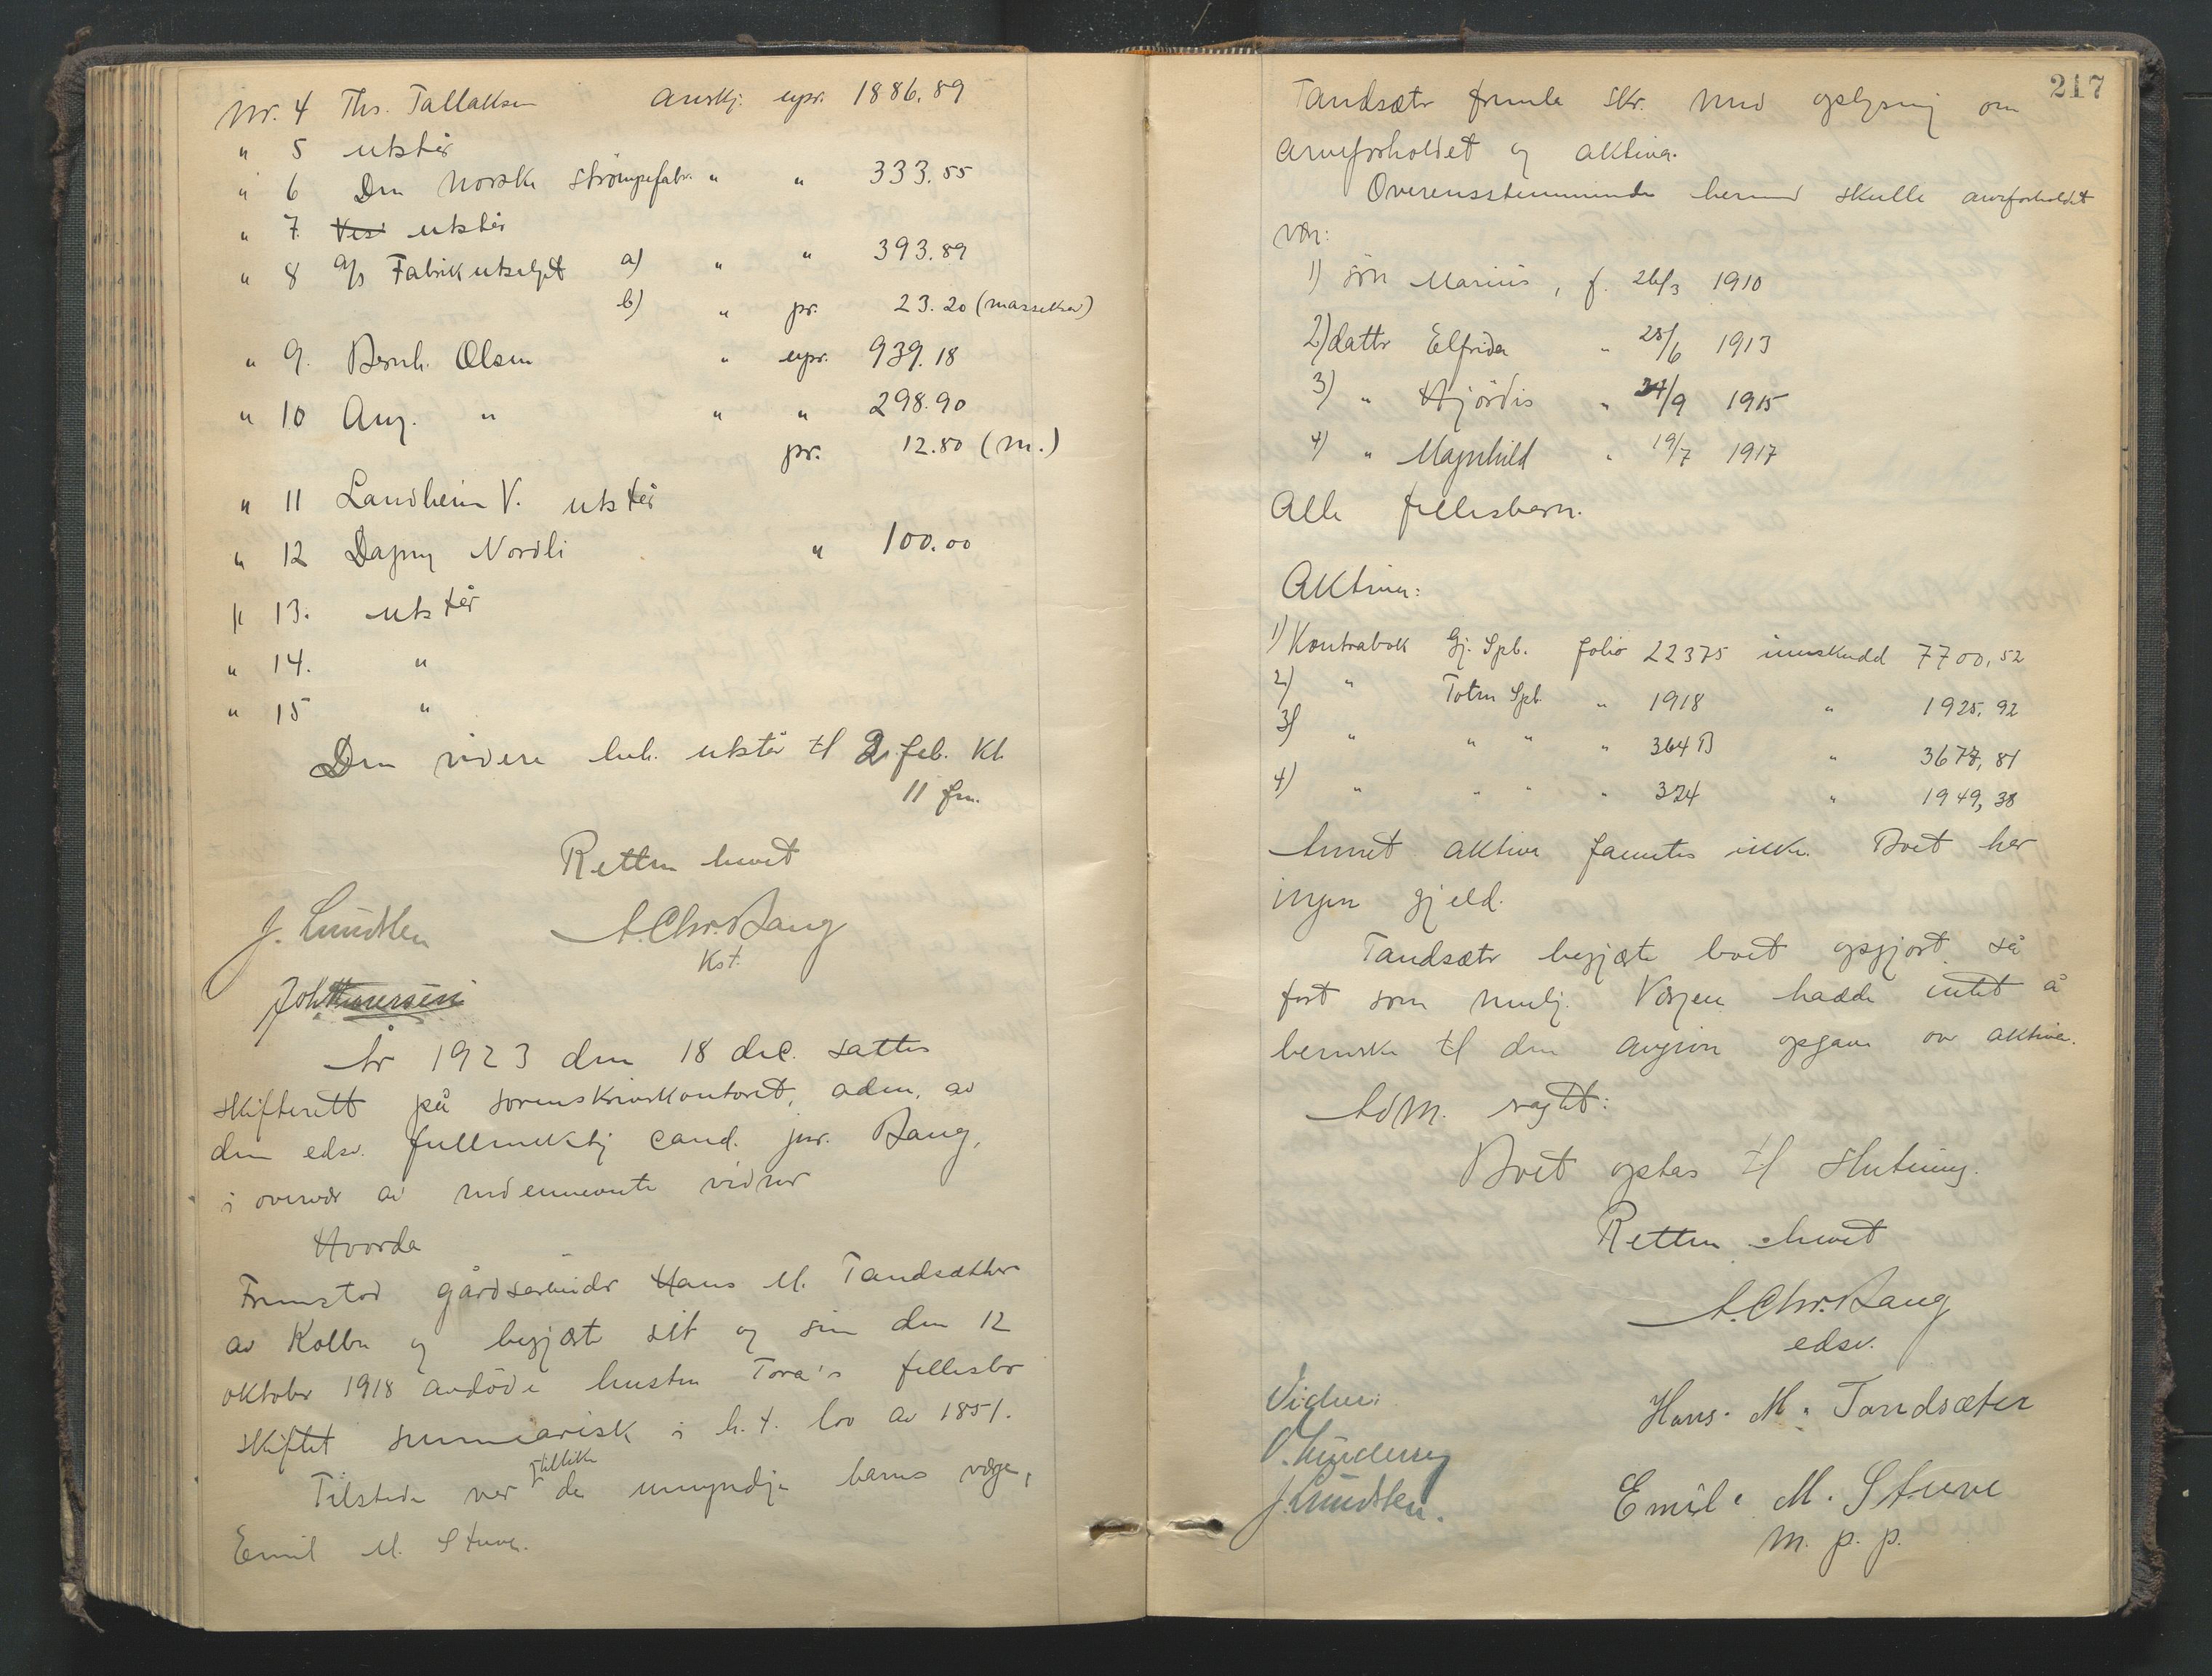 Nr. 4 Ths. Tallaksen anerkj. upr. 1886.89
" 5 utstår
" 6 Den Norske strømpefabr. " " 333.55
" 7. Ves utstår
" 8 A/s Fabrikutsalget a) " " 393.89
b) " pr. 23.20 (massekrav)
" 9. Bernh. Olsen " upr. 939.18
" 10 Aug. " " " 298.90
pr. 12.80 (m.)
" 11 Landheim V. utstår
" 12 Dagny Nordli " 100.00
" 13. utstår
" 14. "
" 15 "
Den videre beh. utstår til 2. feb. kl.
11 fm.
Retten hevet
J. Lundsten A. Chr. Bang
Kst.
År 1923 den 18 dec. sattes
skifterett på sorenskriverkontoret, adm. av
den edsv. fullmektig cand. jur. Bang,
i overvær av nedennevnte vidner
Hvorda
Fremstod gårdsarbeider Hans M. Tandsæther
av Kolbu og begjærte sit og sin den 12
oktober 1918 avdøde hustru Tora's fellesbo
skiftet summarisk i h. t. lov av 1851.
Tilstede var tillike de umyndige barns verge,
Emil M. Stuve.
217
Tandsæter fremla skr. med oplysning om
arveforholdet og aktiva.
Overensstemmende hermed skulle arveforholdet
være:
1) søn Marius, f. 26/3 1910
2) datter Elfrida " 28/6 1913
3) " Hjørdis " /9 1915
4) " Magnhild " 19/7 1917
Alle fellesbarn.
Aktiva:
1) Kontrabok Gj. Spb. folio 22375 innskudd 7700,52
2) " Toten Spb. " 1918 " 1925,92
3) " " " " 364 B " 3677,81
4) " " " " 324 " 1949,38
Annet aktiva fantes ikke. Boet har
ingen gjeld.
Tandsæter begjærte boet opgjort så
fort som mulig. Vergen hadde intet å
bemerke til den avgivne opgave over aktiva.
Adm. vagtet:
Boet optas til slutning.
Retten hevet
A. Chr. Bang
edsv.
Vidner: Hans. M. Tandsæter
J. Lundsten. Emil. M. Stuve
m. p. p.